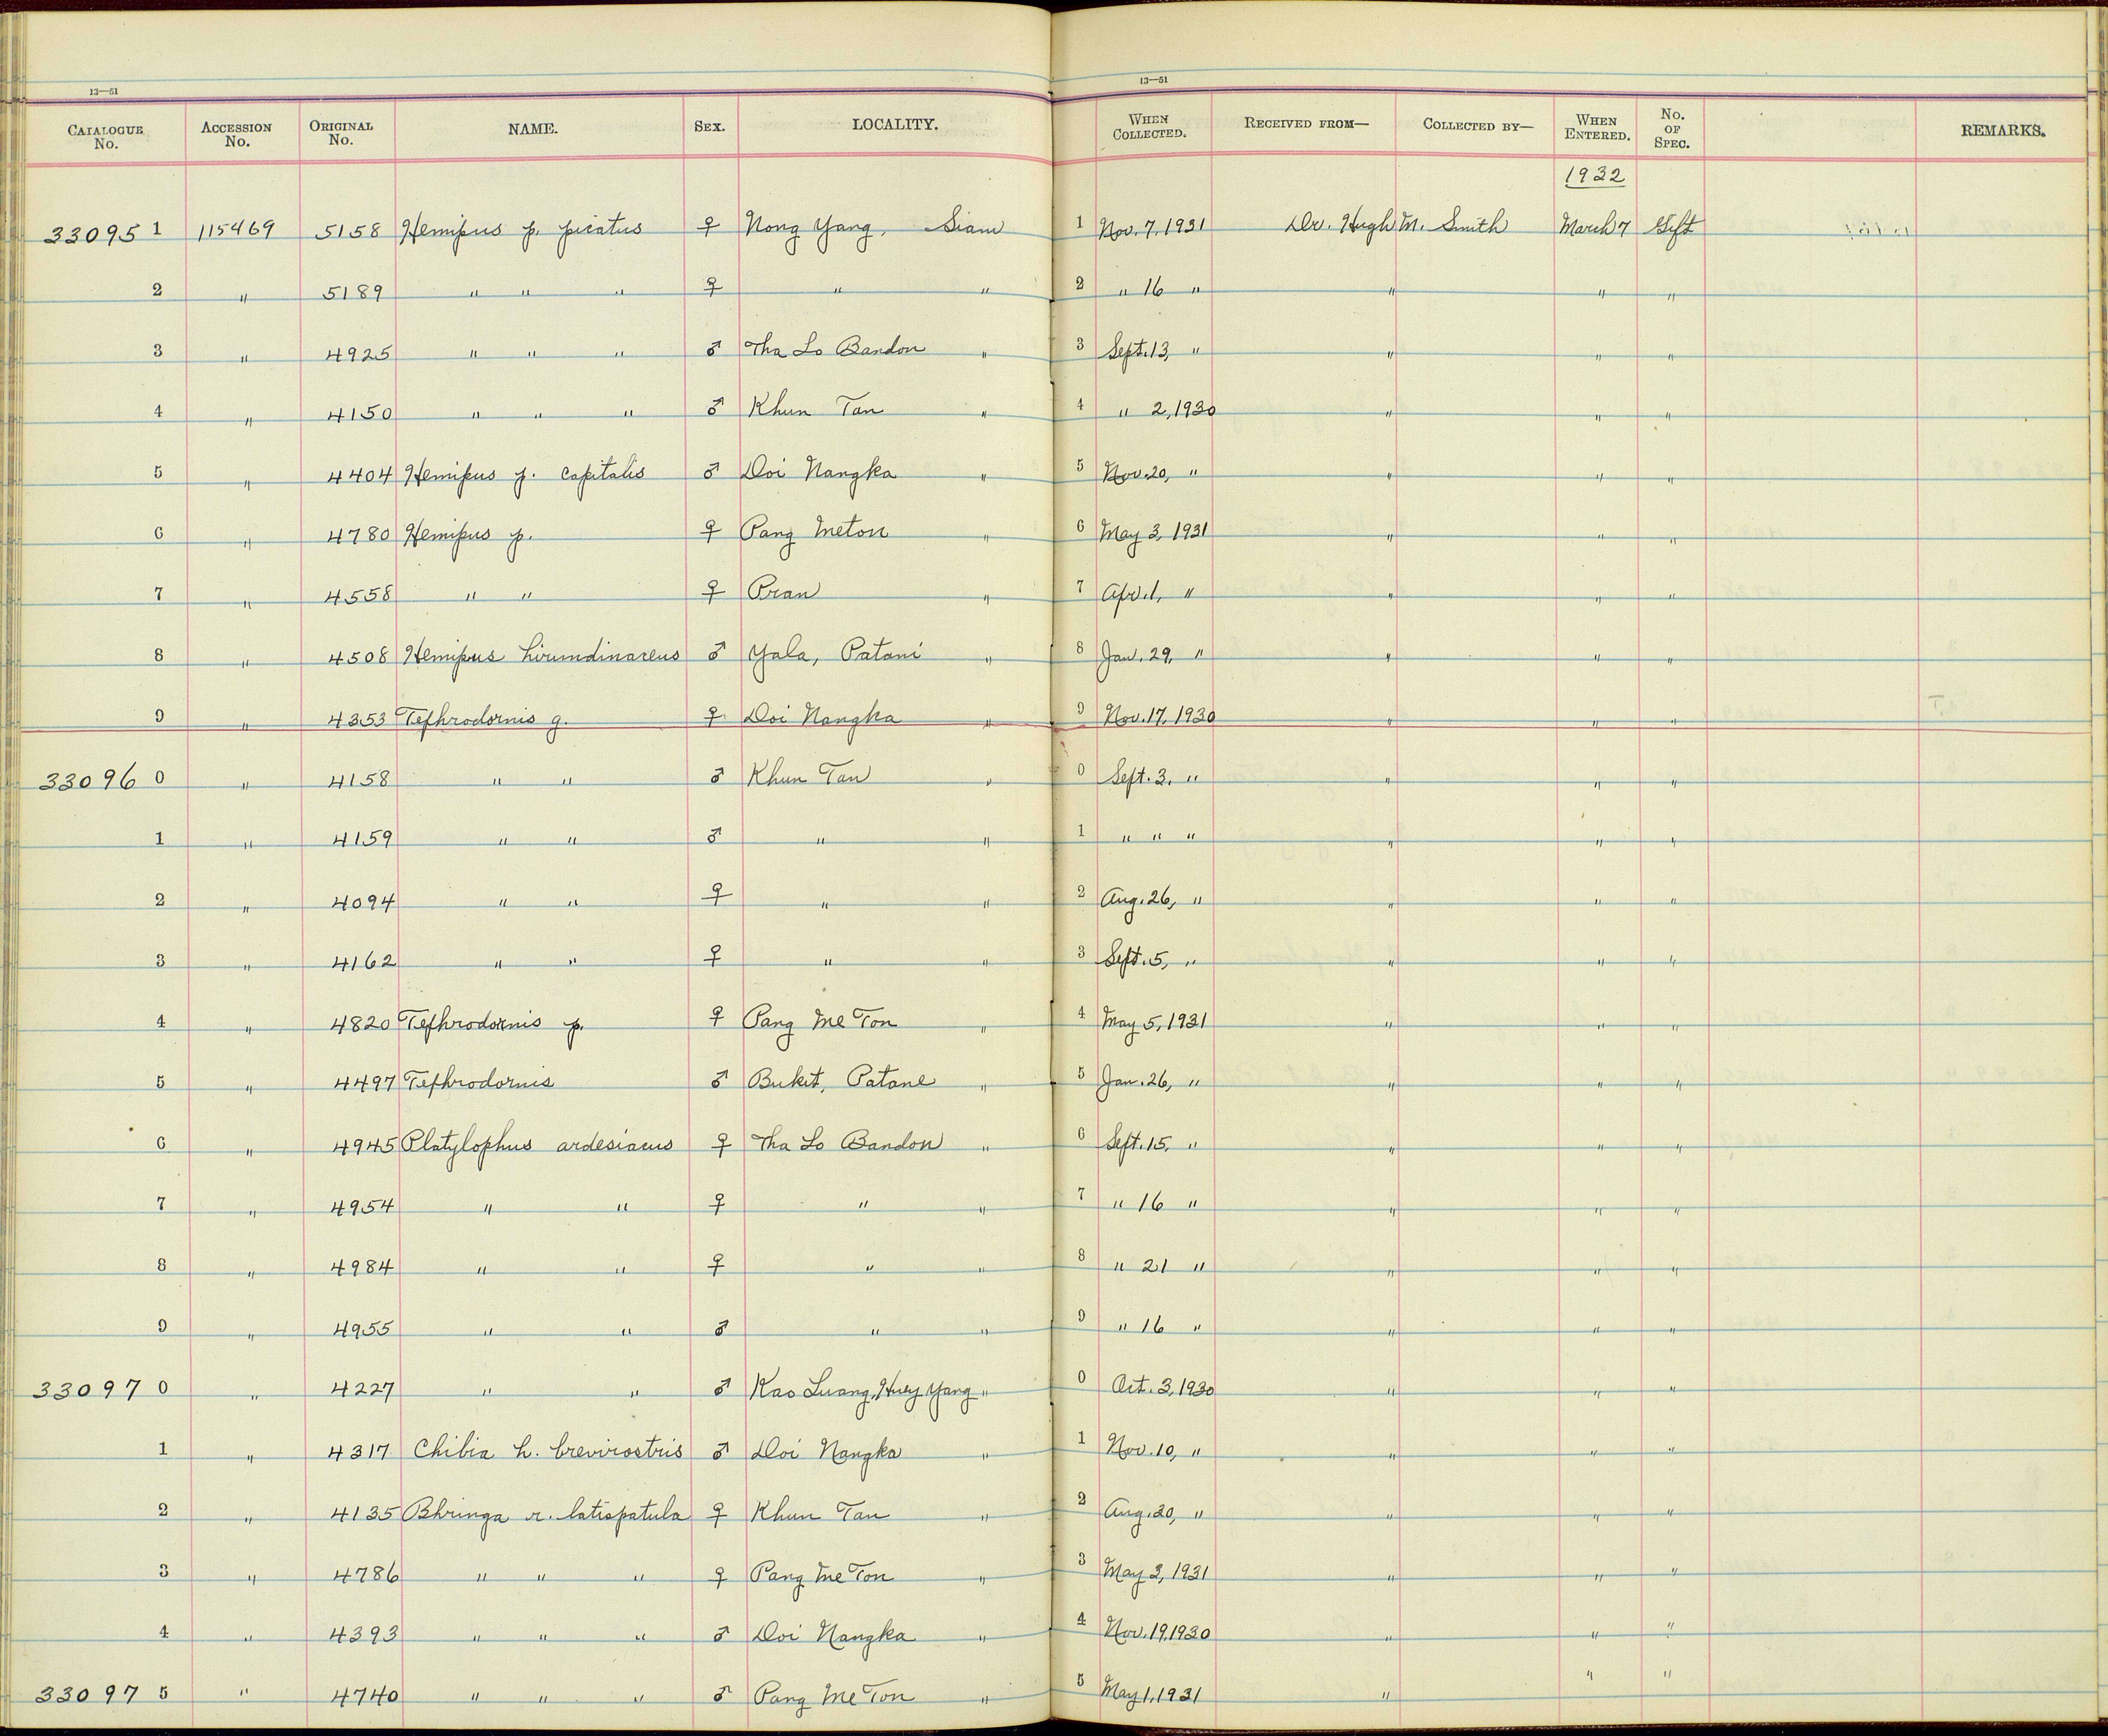 13—51 13—51
CATALOGUE No. ACCESSION No. ORIGINAL No. NAME. SEX. LOCALITY. WHEN COLLECTED. RECEIVED FROM— COLLECTED BY— WHEN ENTERED. No. OF SPEC. REMARKS.
1932
33095 1 115469 5158 Hemipus p. picatus ♀ Nong Yang, Siam 1 Nov. 7, 1931 Dr. Hugh M. Smith March 7 Gift
2 " 5189 " " " ♀ " " 2 " 16 " " " "
3 " 4925 " " " ♂ Tha Lo Bandon " 3 Sept. 13, " " " "
4 " 4150 " " " ♂ Khun Tan " 4 " 2, 1930 " " "
5 " 4404 Hemipus p. capitalis ♂ Doi Nangka " 5 Nov. 20, " " " "
6 " 4780 Hemipus p. ♀ Pang Meton " 6 May 3, 1931 " " "
7 " 4558 " " ♀ Pran " 7 Apr. 1, " " " "
8 " 4508 Hemipus hirundinaceus ♂ Yala, Patani " 8 Jan. 29, " " " "
9 " 4353 Tephrodornis g. ♀ Doi Nangka " 9 Nov. 17, 1930 " " "
33096 0 " 4158 " " ♂ Khun Tan " 0 Sept. 3, " " " "
1 " 4159 " " ♂ " " 1 " " " " " "
2 " 4094 " " ♀ " " 2 Aug. 26, " " " "
3 " 4162 " " ♀ " " 3 Sept. 5, " " " "
4 " 4820 Tephrodornis p. ♀ Pang Me Ton " 4 May 5, 1931 " " "
5 " 4497 Tephrodornis ♂ Bukit, Patane " 5 Jan. 26, " " " "
6 " 4945 Platylophus ardesiacus ♀ Tha Lo Bandon " 6 Sept. 15, " " " "
7 " 4954 " " ♀ " " 7 " 16 " " " "
8 " 4984 " " ♀ " " 8 " 21 " " " "
9 " 4955 " " ♂ " " 9 " 16 " " " "
33097 0 " 4227 " " ♂ Kao Luang, Huey Yang " 0 Oct. 3, 1930 " " "
1 " 4317 Chibia h. brevirostris ♂ Doi Nangka " 1 Nov. 10, " " " "
2 " 4135 Bhringa r. latispatula ♀ Khun Tan " 2 Aug. 30, " " " "
3 " 4786 " " " ♀ Pang Me Ton " 3 May 3, 1931 " " "
4 " 4393 " " " ♂ Doi Nangka " 4 Nov. 19, 1930 " " "
33097 5 " 4740 " " " ♂ Pang Me Ton " 5 May 1, 1931 " " "